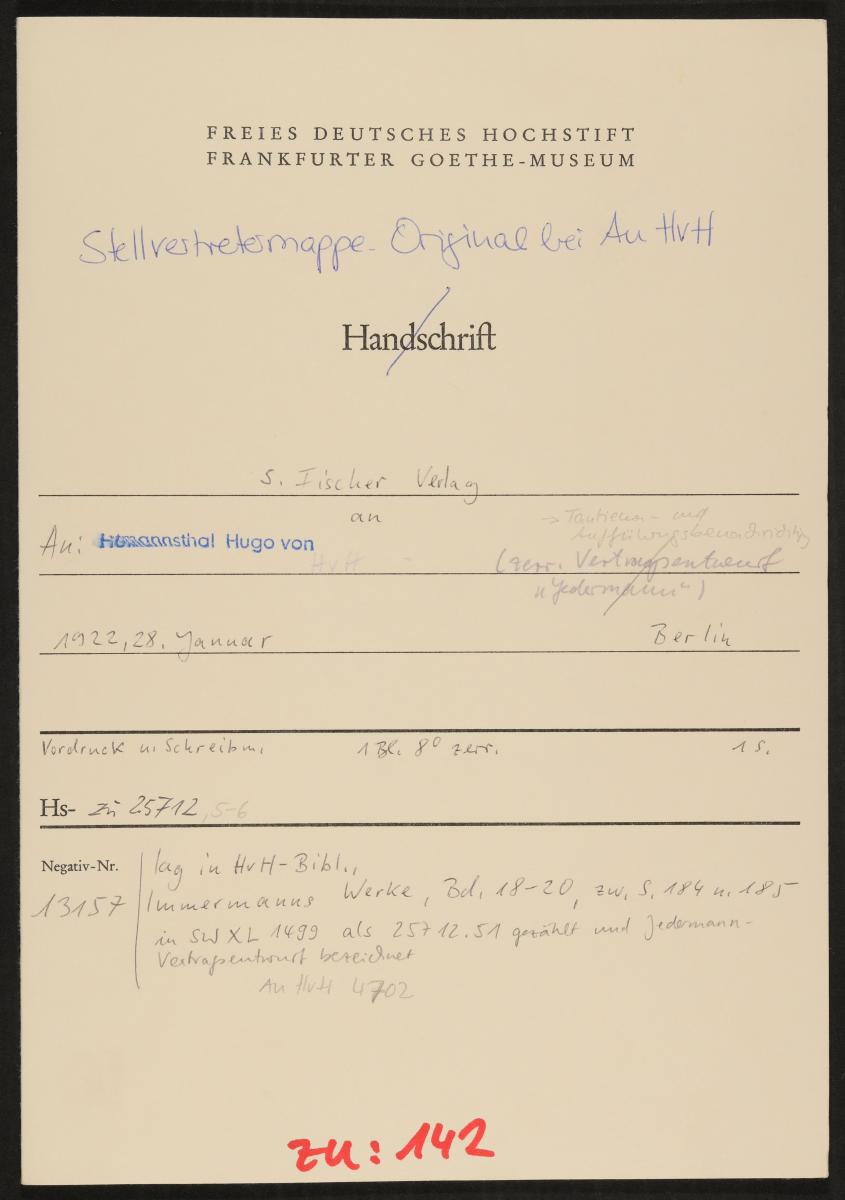 FREIES DEUTSCHES HOCHSTIFT
FRANKFURTER GOETHE-MUSEUM
Stellvertretermappe. Original bei An HvH
Handschrift
S. Fischer Verlag
an
→ Tantiemen- und
Aufführungsbenachrichtig
An: Hofmannsthal Hugo von
HvH -
(zerr. Vertragsentwurf
"Jedermann")
1922, 28. Januar
Berlin
Vordruck u. Schreibm. 1 Bl. 8° zerr. 1 S.
Hs- zu 25712, 5-6
Negativ-Nr. lag in HvH-Bibl.,
13157 Immermanns Werke, Bd. 18-20, zw. S. 184 u. 185
in SW XL 1499 als 25712.51 gezählt und Jedermann-
Vertragsentwurf bezeichnet
An HvH 4702
zu: 142